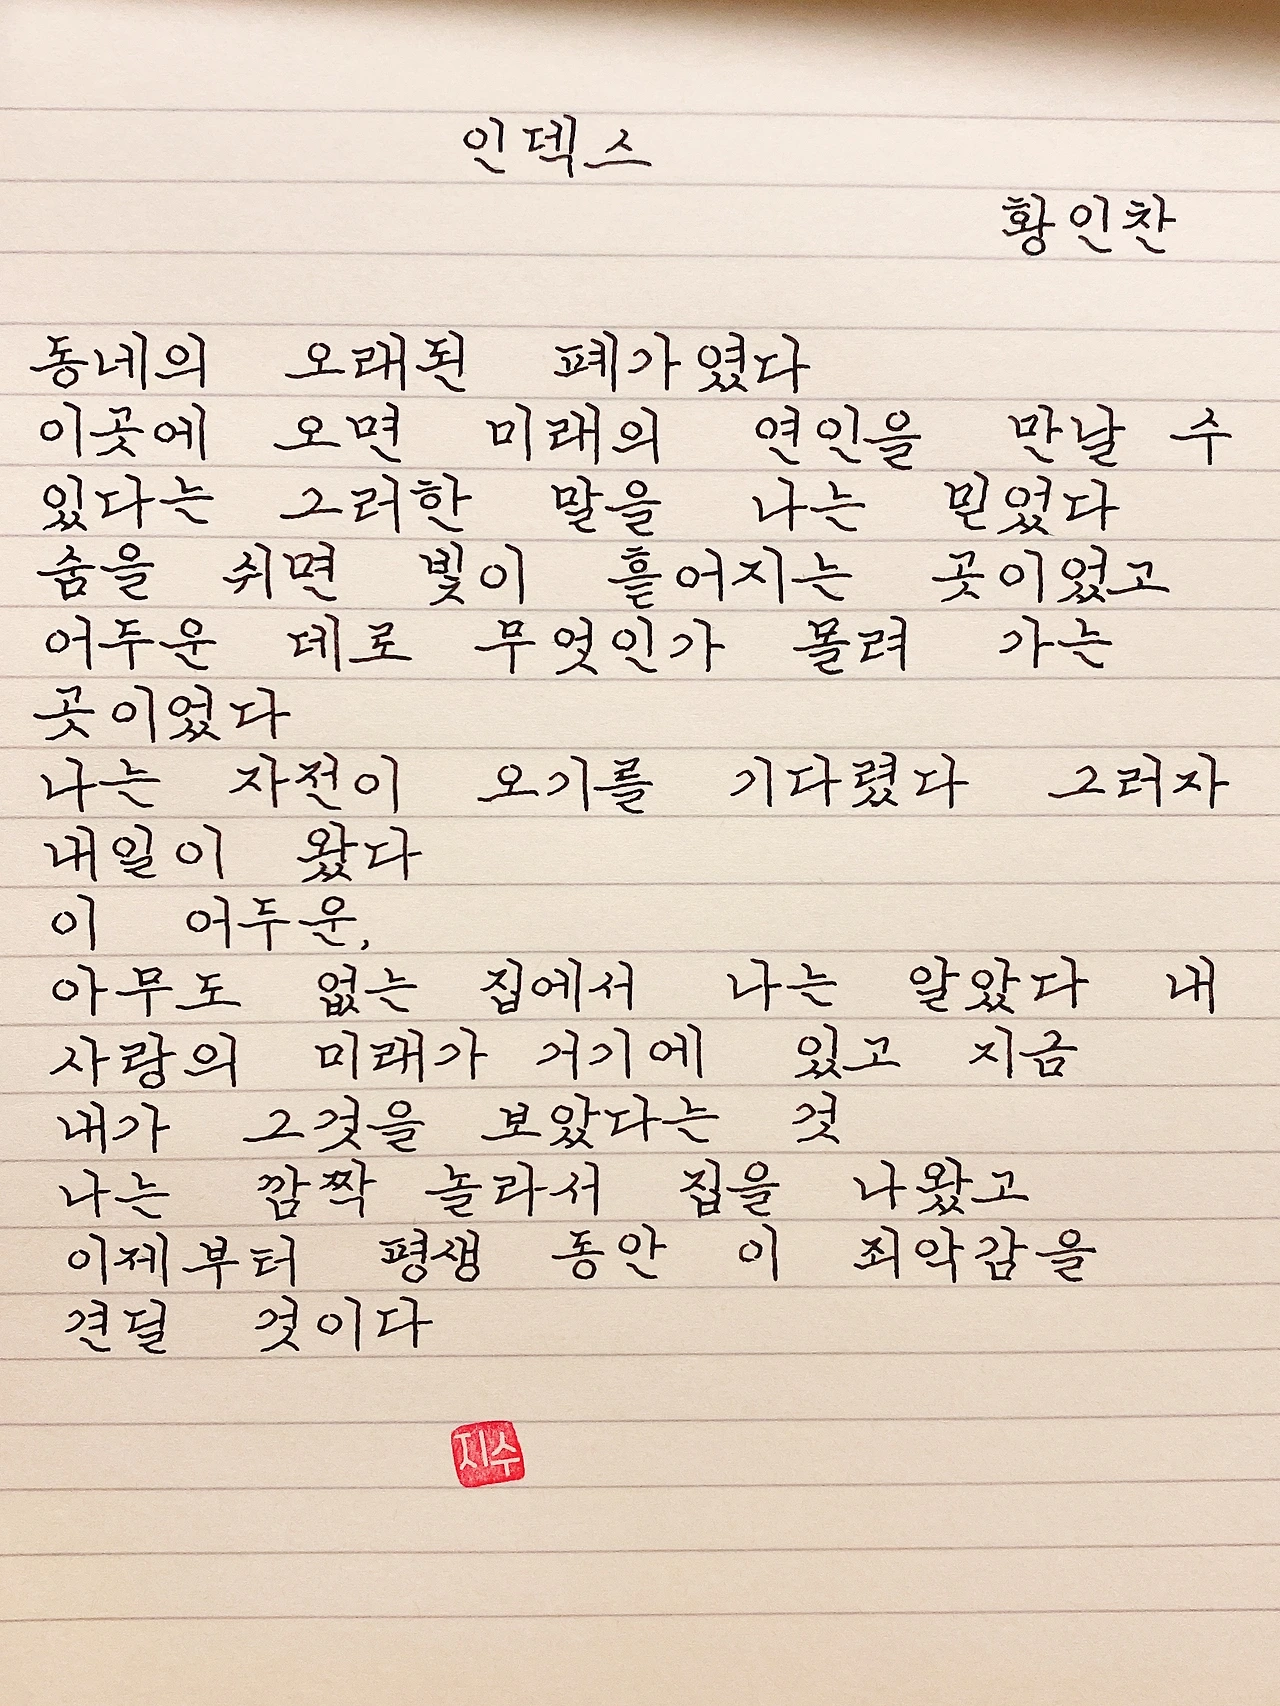 인덱스
황인찬
동네의 오래된 폐가였다
이곳에 오면 미래의 연인을 만날 수
있다는 그러한 말을 나는 믿었다
숨을 쉬면 빛이 흩어지는 곳이었고
어두운 데로 무엇인가 몰려 가는
곳이었다
나는 자전이 오기를 기다렸다 그러자
내일이 왔다
이 어두운,
아무도 없는 집에서 나는 알았다 내
사랑의 미래가 거기에 있고 지금
내가 그것을 보았다는 것
나는 깜짝 놀라서 집을 나왔고
이제부터 평생 동안 이 죄악감을
견딜 것이다
지수